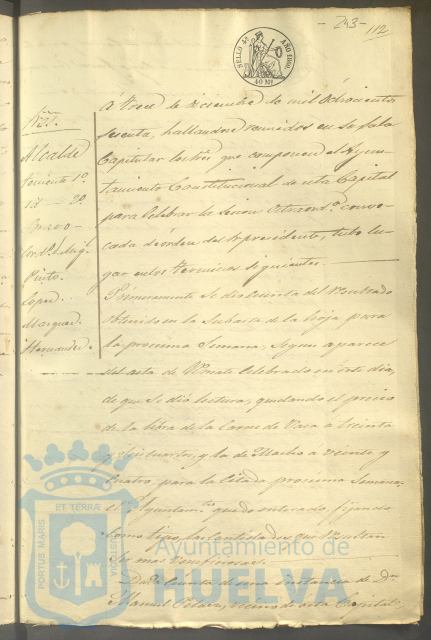 - 243 -
112
SELLO 4º AÑO 1860.
40 Ms
Sres.
Alcalde
Teniente 1º
Id. 2º
Bravo
Pinto.
Lopez.
Marquez
Hernandez.
A trece de Diciembre de mil ochocientos
sesenta, hallandose reunidos en la Sala
Capitular los Sres. que componen el Ayun-
tamiento Constitucional de esta Capital
para celebrar la sesion extraordª. convo-
cada de órden del Sr. presidente, tubo lu-
gar en los terminos siguientes.
Primeramente se dió cuenta del resultado
obtenido en la subasta de la hoja para
la procsima semana, segun aparece
del acta de remate celebrado en este dia,
de que se dió lectura, quedando el precio
de la libra de la Carne de Vaca a treinta
y seis cuartos, y la de Macho a veinte y
cuatro, para la citada procsima semana;
el Ayuntamº. quedó enterado, fijando
como tipo, las cantidades que resultan
ser mas venficiosas.
Dada cuenta de una instancia de Dn
Manuel vecino de esta Capital
PORTUS MARIS ET TERRÆ CUSTODIA
Ayuntamiento de
HUELVA